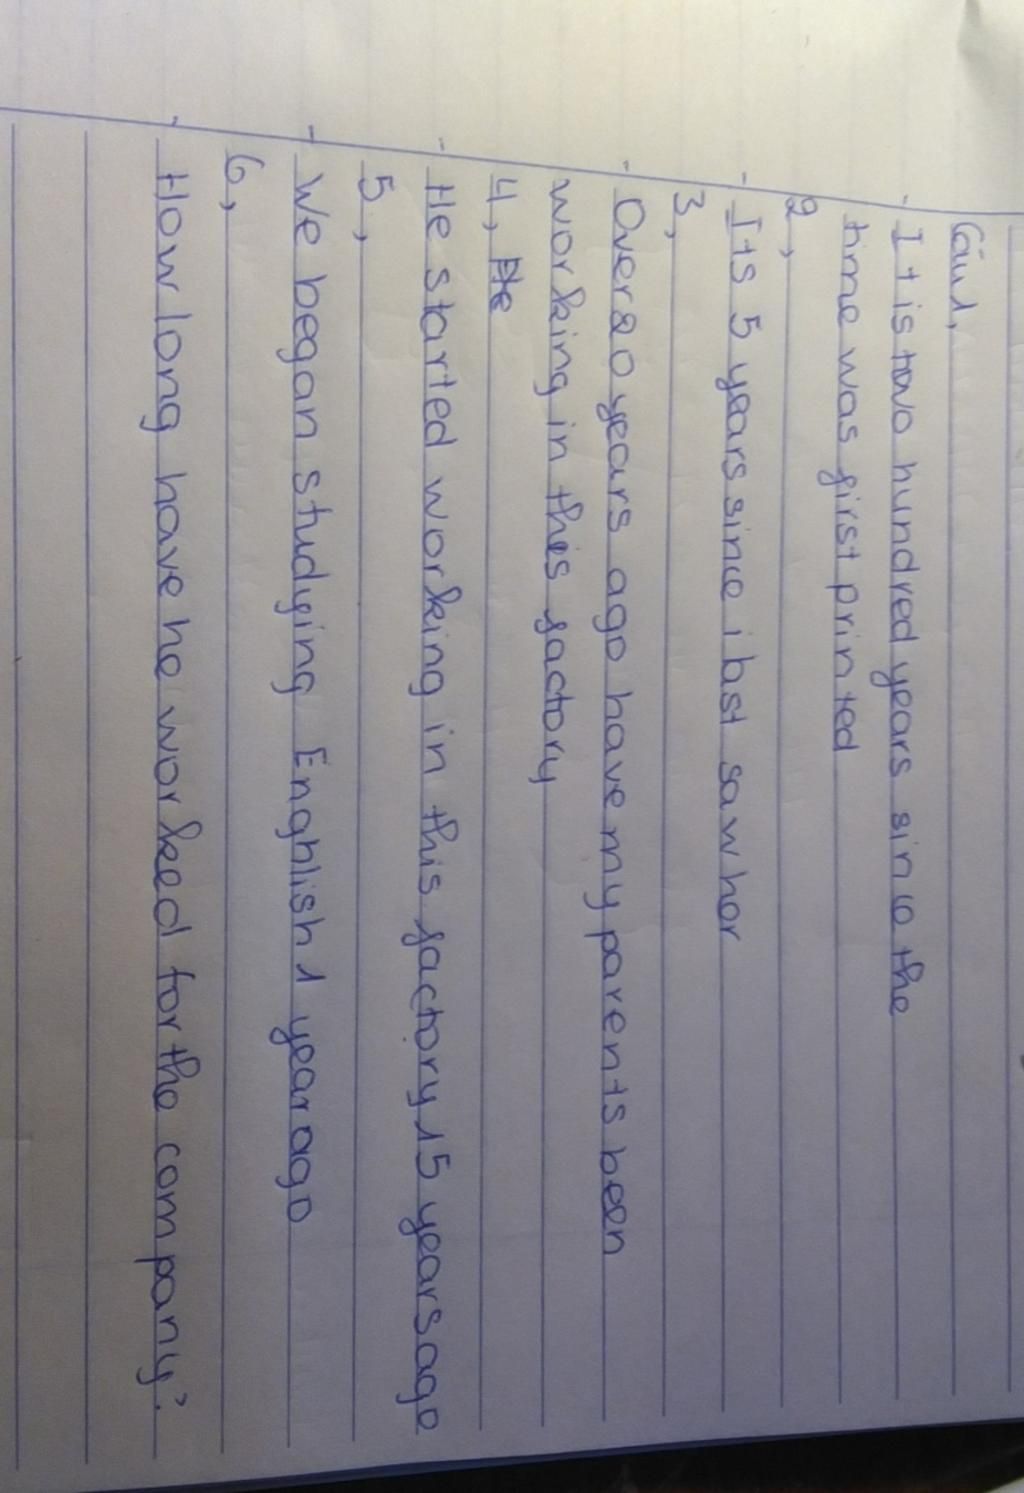 Câu1,
- It is two hundred years since the
time was first printed
2,
- Its 5 years since i last saw her
3,
- Over 20 years ago have my parents been
working in this factory
4, He
- He started working in this factory 15 years ago
5,
- We began studying Enghlish 1 year ago
6,
- How long have he worked for the company?.